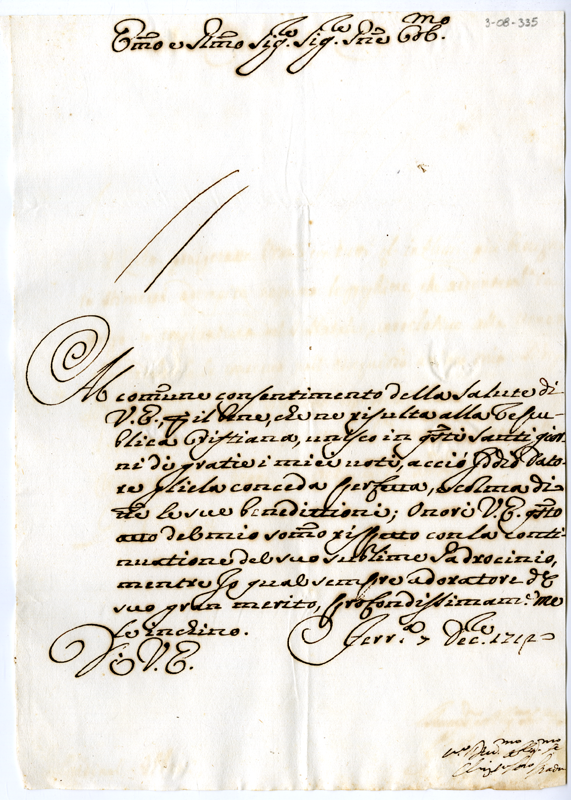 3-08-335
Emo e Rmo Sig.re Sig.re Pne Col.mo
Al comune consentimento della salute di
V. E., p il bene, che ne risulta alla Repu-
blica Xristiana, unisco in qsti santi gior-
ni di gratie i miei voti, acciò Iddio Dato-
re gliela conceda perfetta, e colma di-
le sue benedittioni; Onori V. E. qsto
atto del mio sommo rispetto con la conti-
nuatione del suo sublime Padrocinio,
mentre Io qual sempre adoratore del
suo gran merito, profondissimam.e me
le inchino.
Di V. E.
Ferr.a 7 Dec.re 1712